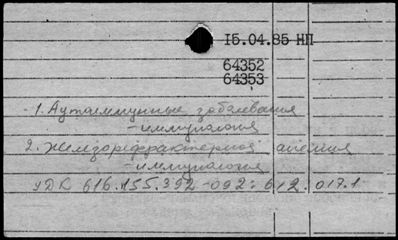 15.04.85 НП
64352
64353
1. Аутоиммунные заболевания
- иммунология
2. Железорефрактерная анемия
- иммунология
УДК 616.155.392-092:612.017.1